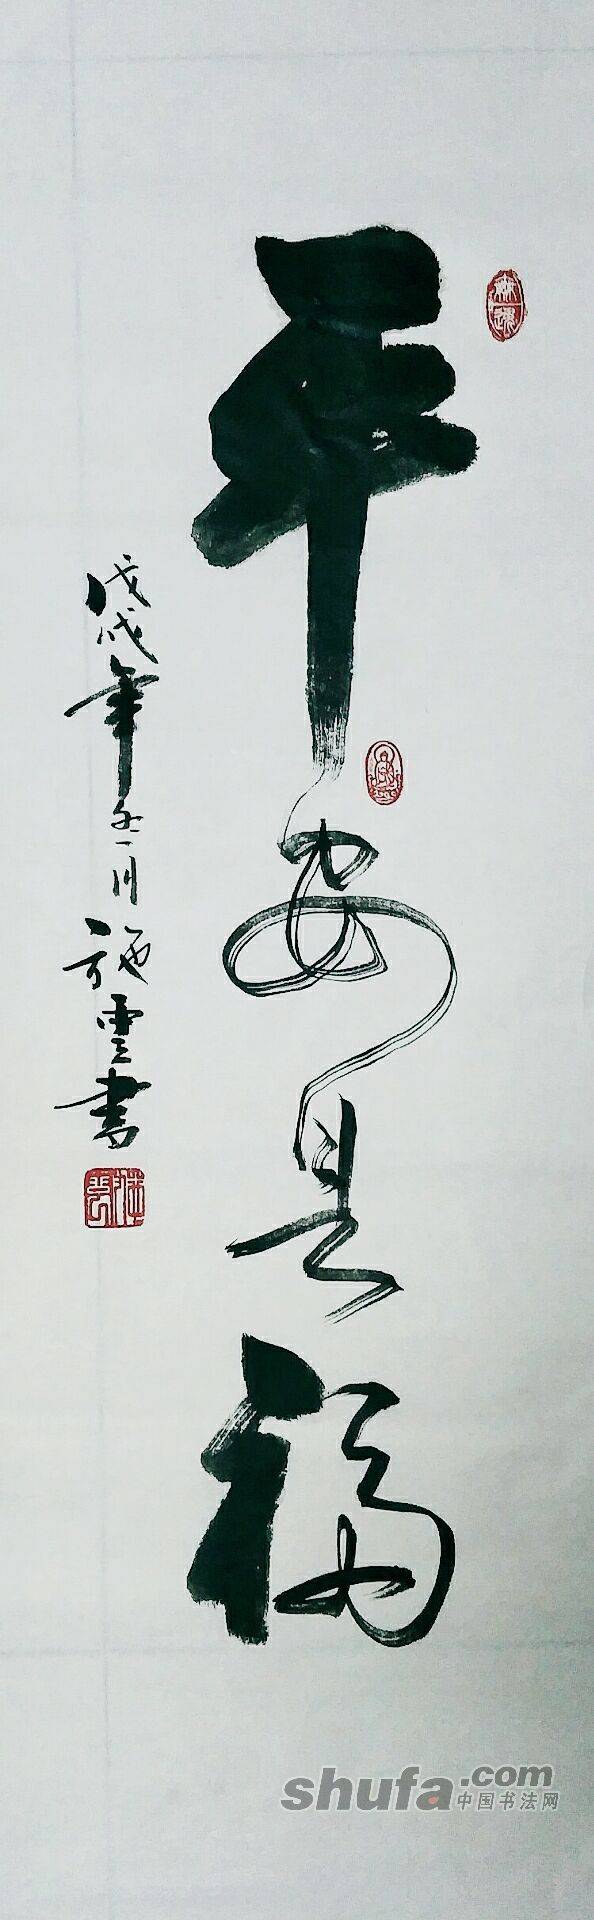 平安是福
戊戌年五月施雲書
shufa.com
中国书法网